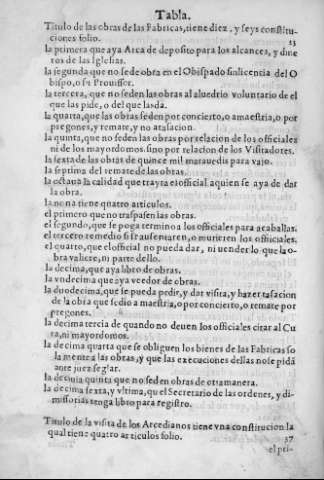 Tabla.
Titulo de las obras de las Fabricas, tiene diez, y seys constitu-
ciones folio.
23
la primera que aya Arca de deposito para los alcances, y dine
ros de las Iglesias.
la segunda que no se de obra en el Obispado sin licencia del O
bispo, o su Prouisor.
la tercera, que no se den las obras al aluedrio voluntario de el
que las pide, o del que las da.
la quarta, que las obras se den por concierto, o a maestria, o por
pregones, y remate, y no a tasacion.
la quinta, que no se den las obras por relacion de los officiales
ni de los mayordomos. sino por relacion de los Visitadores.
la sexta de las obras de quince mil marauedis para vajo.
la septima del remate de las obras.
la octaua la calidad que trayra el official a quien se aya de dar
la obra.
la nona tiene quatro articulos.
el primero que no traspasen las obras.
el segundo, que se ponga termino a los officiales para acaballas.
el tercero remedio si se ausentaren, o murieren los officiales.
el quarto, que el official no pueda dar, ni uender lo que la o-
bra valiere, ni parte dello.
la decima, que aya libro de obras.
la vndecima que aya veedor de obras.
la duodecima, que se pueda pedir, y dar visita, y hazer tasacion
de la obra que se dio a maestria, o por concierto, o remate por
pregones.
la decima tercia de quando no deuen los officiales citar al Cu
ra, ni mayordomos.
la decima quarta que se obliguen los bienes de las Fabricas so
la mente a las obras, y que las execuciones dellas no se pidã
ante juez seglar.
la decima quinta que no se den obras de otra manera.
la decima sexta, y vltima, qu el Secretario de las ordenes, y di-
missorias tenga libro para registro.
Titulo de la visita de los Arcedianos tiene vna constitucion la
qual tiene quatro articulos folio.
37
el pri-